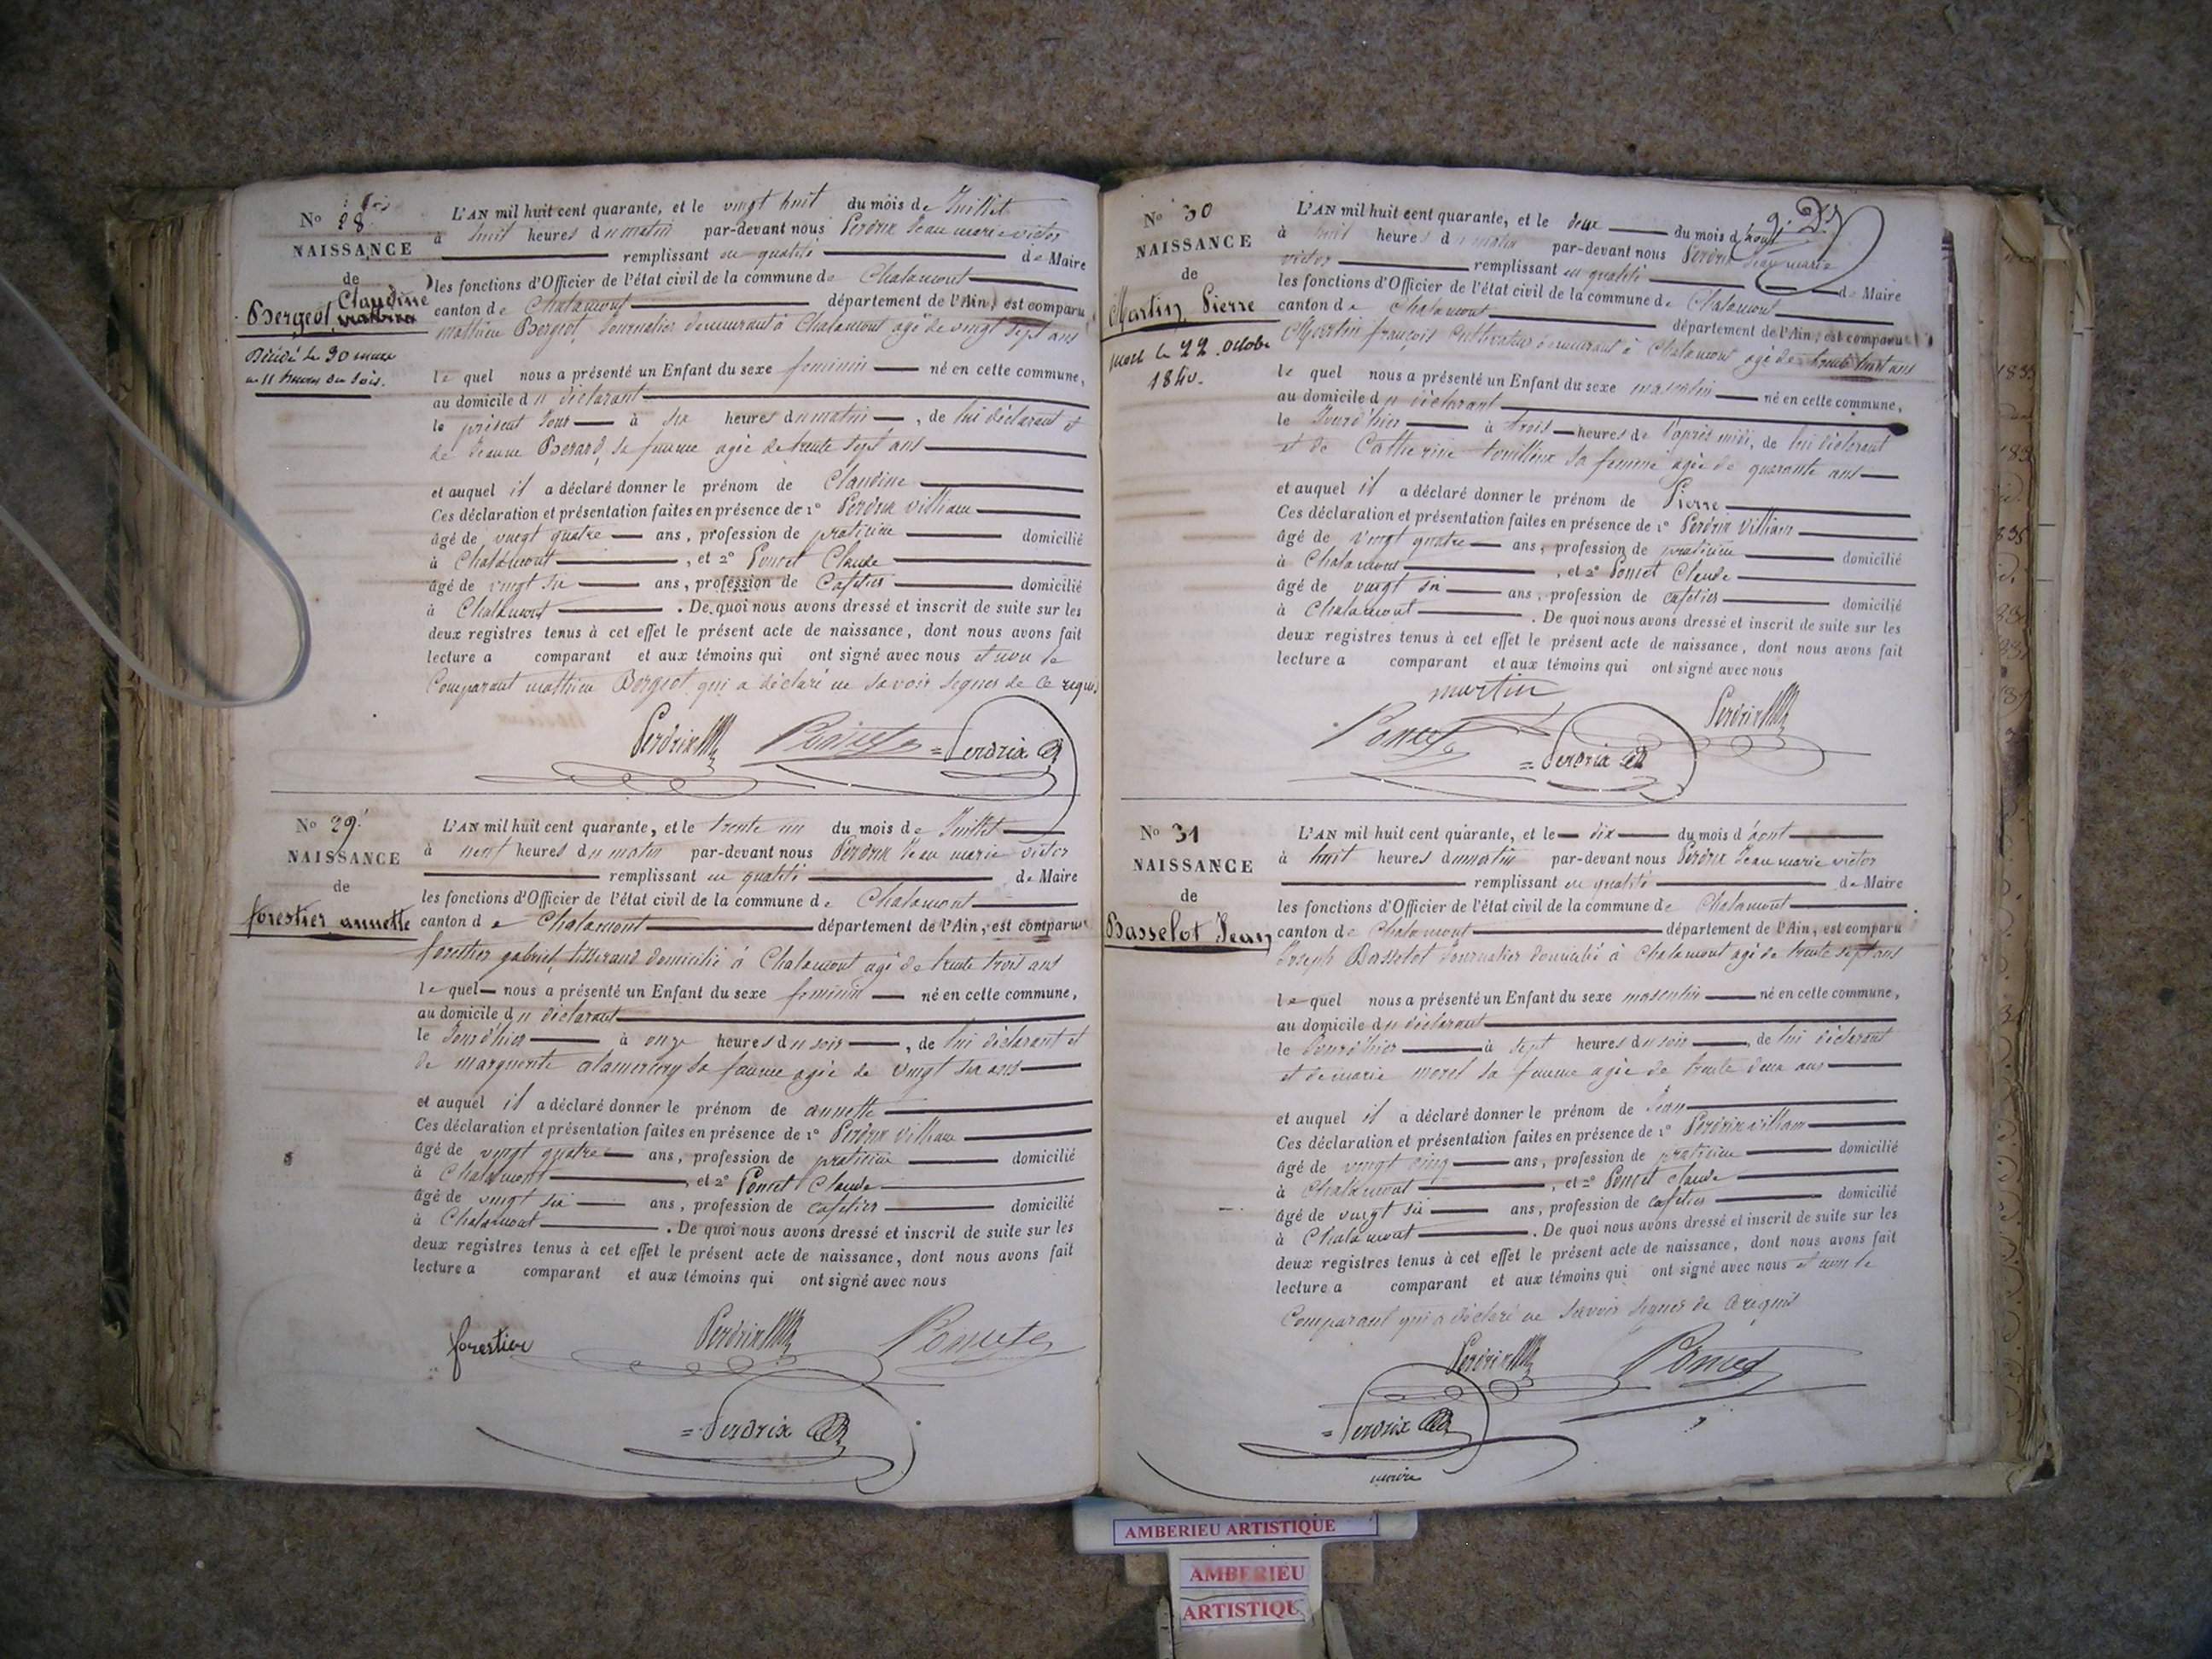 No 28
NAISSANCE
de
Claudine
Bergeot
Décédé le 30 mars
à 11 heures du soir.
L'AN mil huit cent quarante, et le vingt huit du mois de Juillet
à huit heures du matin par-devant nous Perdrix Jean marie victor
remplissant en qualité de Maire
les fonctions d'Officier de l'état civil de la commune de Chalamont
canton de Chalamont département de l'Ain, est comparu
mathieu Bergeot, Journalier demeurant à Chalamont agé de vingt sept ans
le quel nous a présenté un Enfant du sexe feminin né en cette commune,
au domicile du déclarant
le présent Jour à six heures du matin, de lui déclarant et
de Jeanne Berard, sa femme agée de trente sept ans
et auquel il a déclaré donner le prénom de Claudine
Ces déclaration et présentation faites en présence de 1º Perdrix William
âgé de vingt quatre ans, profession de praticien domicilié
à Chalamont, et 2º Poncet Claude
âgé de vingt six ans, profession de Cafetier domicilié
à Chalamont. De quoi nous avons dressé et inscrit de suite sur les
deux registres tenus à cet effet le présent acte de naissance, dont nous avons fait
lecture a comparant et aux témoins qui ont signé avec nous et non le
Comparant mathieu Bergeot qui a déclaré ne savoir signer de ce requis
Perdrix Poncet = Perdrix
No 29
NAISSANCE
de
forestier annette
L'AN mil huit cent quarante, et le trente un du mois de Juillet
à neuf heures du matin par-devant nous Perdrix Jean marie victor
remplissant en qualité de Maire
les fonctions d'Officier de l'état civil de la commune de Chalamont
canton de Chalamont département de l'Ain, est comparu
forestier gabriel, tisserand domicilié à Chalamont agé de trente trois ans
le quel nous a présenté un Enfant du sexe feminin né en cette commune,
au domicile du déclarant
le Jourd'hier à onze heures du soir, de lui déclarant et
de marguerite sa femme agée de vingt six ans
et auquel il a déclaré donner le prénom de annette
Ces déclaration et présentation faites en présence de 1º Perdrix William
âgé de vingt quatre ans, profession de praticien domicilié
à Chalamont, et 2º Poncet Claude
âgé de vingt six ans, profession de cafetier domicilié
à Chalamont. De quoi nous avons dressé et inscrit de suite sur les
deux registres tenus à cet effet le présent acte de naissance, dont nous avons fait
lecture a comparant et aux témoins qui ont signé avec nous
forestier Perdrix Poncet
= Perdrix
No 30
NAISSANCE
de
Martin Pierre
mort le 22 octobre
1840.
L'AN mil huit cent quarante, et le deux du mois d'août
à huit heures du matin par-devant nous Perdrix Jean marie
victor remplissant en qualité de Maire
les fonctions d'Officier de l'état civil de la commune de Chalamont
canton de Chalamont département de l'Ain, est comparu
Martin françois Cultivateur demeurant à Chalamont agé de trente huit ans
le quel nous a présenté un Enfant du sexe masculin né en cette commune,
au domicile du déclarant
le Jourd'hier à trois heures de l'après midi, de lui déclarant
et de Catherine sa femme agée de quarante ans
et auquel il a déclaré donner le prénom de Pierre
Ces déclaration et présentation faites en présence de 1º Perdrix William
âgé de vingt quatre ans, profession de praticien domicilié
à Chalamont, et 2º Poncet Claude
âgé de vingt six ans, profession de cafetier domicilié
à Chalamont. De quoi nous avons dressé et inscrit de suite sur les
deux registres tenus à cet effet le présent acte de naissance, dont nous avons fait
lecture a comparant et aux témoins qui ont signé avec nous
martin
Poncet Perdrix
= Perdrix
No 31
NAISSANCE
de
Basselot Jean
L'AN mil huit cent quarante, et le dix du mois d'août
à huit heures du matin par-devant nous Perdrix Jean marie victor
remplissant en qualité de Maire
les fonctions d'Officier de l'état civil de la commune de Chalamont
canton de Chalamont département de l'Ain, est comparu
Joseph Basselot Journalier domicilié à Chalamont agé de trente sept ans
le quel nous a présenté un Enfant du sexe masculin né en cette commune,
au domicile du déclarant
le Jourd'hier à sept heures du soir, de lui déclarant
et de marie morel sa femme agée de trente deux ans
et auquel il a déclaré donner le prénom de Jean
Ces déclaration et présentation faites en présence de 1º Perdrix William
âgé de vingt cinq ans, profession de praticien domicilié
à Chalamont, et 2º Poncet Claude
âgé de vingt six ans, profession de cafetier domicilié
à Chalamont. De quoi nous avons dressé et inscrit de suite sur les
deux registres tenus à cet effet le présent acte de naissance, dont nous avons fait
lecture a comparant et aux témoins qui ont signé avec nous et non le
Comparant qui a déclaré ne savoir signer de ce requis
Perdrix Poncet
= Perdrix
maire
AMBERIEU ARTISTIQUE
AMBERIEU
ARTISTIQUE